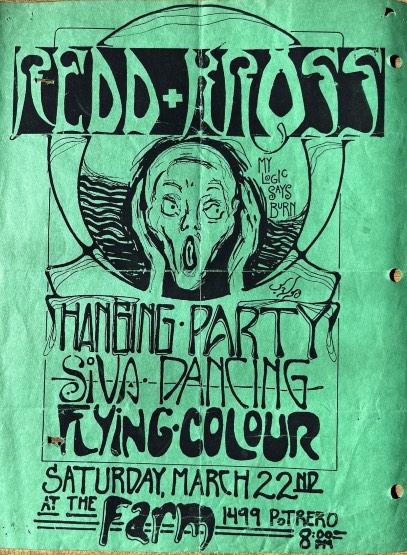 REDD + KROSS
MY
LOGIC
SAYS
BURN
HANGING · PARTY
SiVA · DANCING
FLYING · COLOUR
SATURDAY, MARCH 22ND
AT THE Farm 1499 POTRERO
8:00 PM